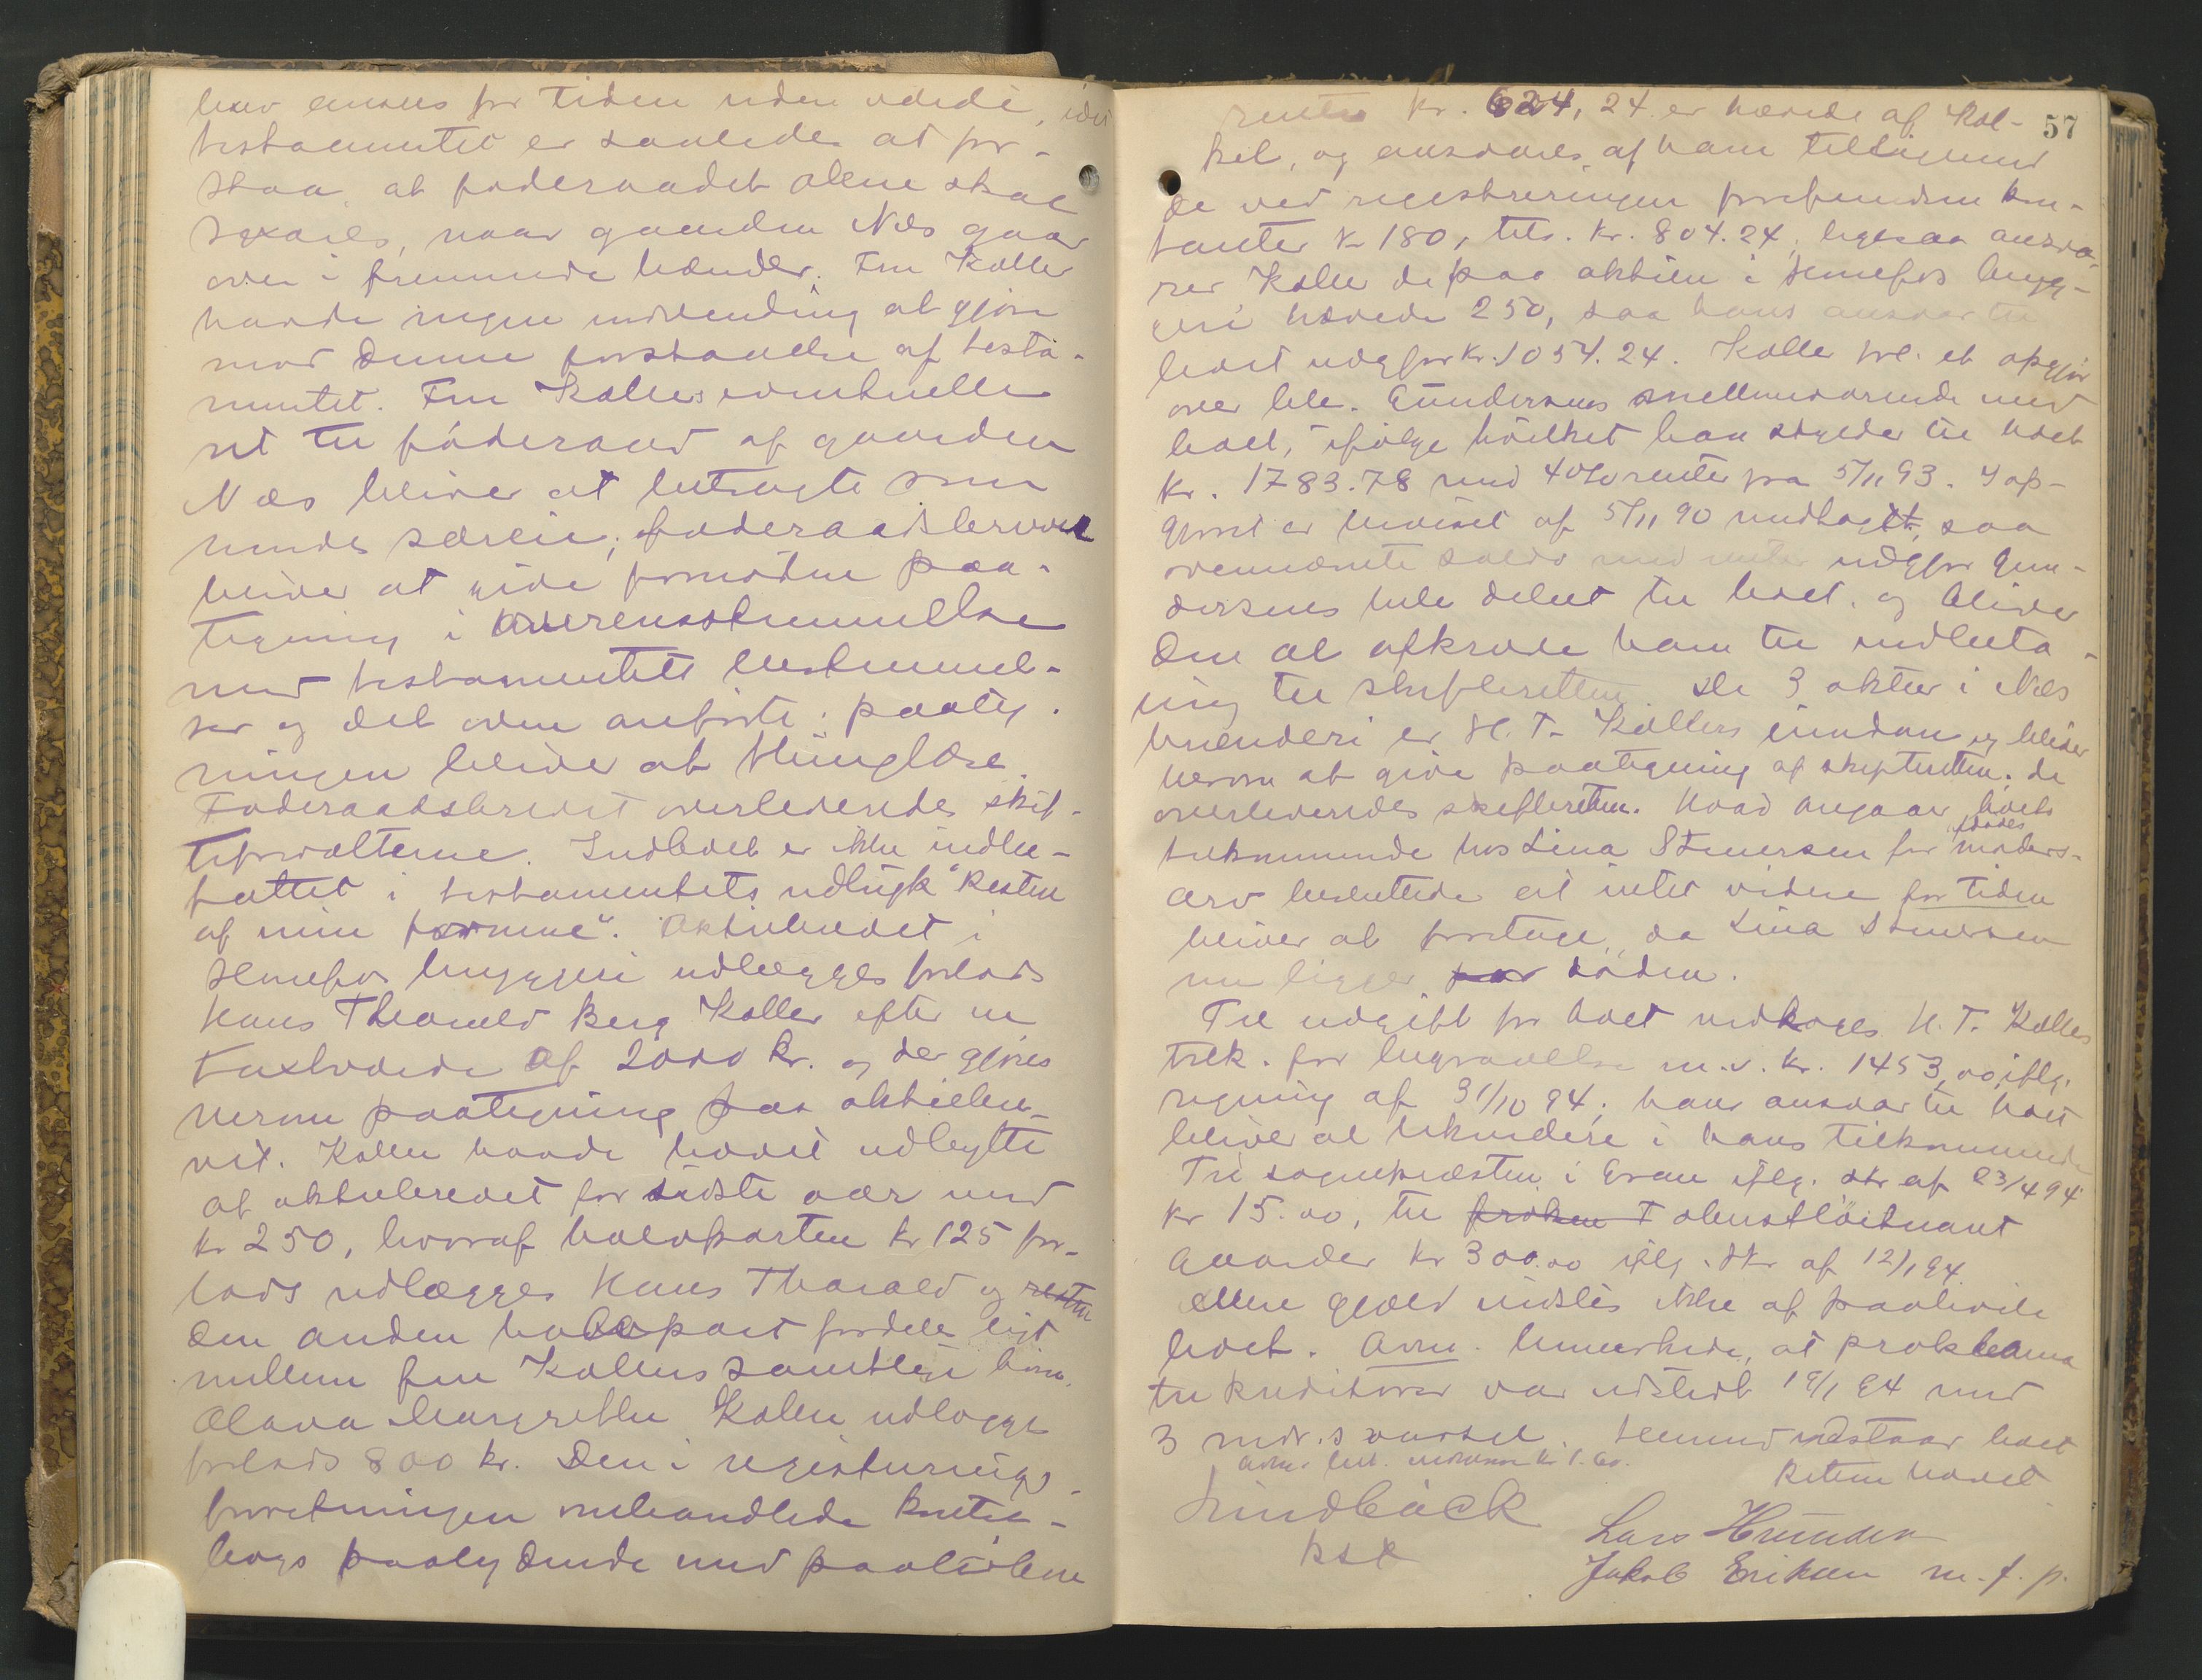 brev ansees for tiden uden værdi, idet
testamentet er saaledes at for-
staa, at føderaadet alene skal
svares, naar gaarden Næs gaar
over i fremmede hænder. Fru Koller
havde ingen indvending at gjøre
mod denne forstaaelse af testa-
mentet. Fru Kollers eventuelle
ret til føderaad af gaarden
Næs bliver at betragte som
hendes særeie; føderaadsbrevet
bliver at give fornøden paa-
tegning i overensstemmelse
med testamentets bestemmel-
ser og det oven anførte; paateg-
ningen bliver at thinglæse.
Føderaadsbrevet overleveredes skif-
teforvalterne. Indboet er ikke indbe-
fattet i testamentets udtryk "Resten
af min formue". Aktiebrevet i
Hønefos bryggeri udlægges forlods
Hans Thorvald Berg Koller efter en
taxtværdi af 2000 kr. og der gjøres
herom paategning paa aktiebre-
vet. Koller havde hævet udbytte
af aktiebrevet for sidste aar med
kr 250, hvoraf halvparten kr 125 for-
lods udlægges Hans Tharald og resten
den anden halvpart fordeles ligt
mellem fru Kollers samtlige børn.
Olava Margrethe Koller udlægges
forlods 800 kr. Den i registrerings-
forretningen omhandlede kontra-
bogs paalydende med paaløbne
57
renter kr. 624,24 er hævede af Kol-
ler, og ansvares af ham tilligemed
de ved registreringen forefundne kon-
tanter kr 180, tils. kr. 804.24, ligesaa ansva-
rer Koller de paa aktien i Hønefos bryg-
geri hævede 250, saa hans ansvar til
boet udgjør kr. 1054.24. Koller frl. et opgjør
over lele. Gundersens mellemværende med
boet, ifølge hvilket han skylder til boet
kr. 1783.78 med 4% renter fra 5/11 93. I op-
gjøret er beviset af 5/11 90 medtaget, saa
ovennævnte saldo med renter udgjør Gun-
dersens hele debet til boet, og bliver
den at afkræve ham til indbeta-
ling til skifteretten. De 3 aktier i Næs
brænderi er H. T. Kollers eiendom og bliver
herom at give paategning af skifteretten; de
overleveredes skifteretten. Hvad angaar boets
tilkommende hos Lina Simensen for dødes moders-
arv besluttede at intet videre for tiden
bliver at foretage, da Lina Simensen
nu ligger for døden.
Til udgift for boet vedtoges H. T. Kollers
tilk. for begravelse m. v. kr. 1453,00 iflg.
regning af 31/10 94; hans ansvar til boet
bliver at likvidere i hans tilkommende
Til sognepræsten i Gran iflg. skr af 23/4 94
kr 15.00, til frøken T oberstløitnant
kr 300.00 iflg. skr af 12/1 94.
Mere gjæld vidstes ikke at paahvile
boet. Anm. bemærkede, at proklama
til kreditorer var udstedt 19/1 94 med
3 mdr.s varsel. Hermed udstaar boet
Retten hævet
Lindbäck
kst
Lars Hrunden
Jakob Eriksen m. f. p.